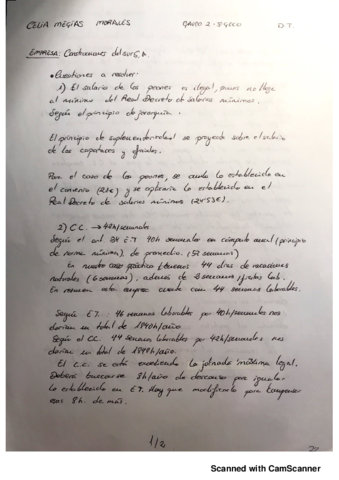 CELIA MEGÍAS MORALES GRUPO 2 - 3ºGECO D.T.
EMPRESA: Construcciones del sur S.A.
• Cuestiones a resolver:
1) El salario de los peones es ilegal, pues no llega
al mínimo del Real Decreto de salarios mínimos.
Según el principio de jerarquía.
El principio de suplementariedad se proyecta sobre el salario
de los capataces y oficiales.
Para el caso de los peones, se anula lo establecido en
el convenio y se aplicaría lo establecido en el
Real Decreto de salarios mínimos
2) C.C. → 42h/semanales
Según el art 34 E.T 40h semanales en cómputo anual (principio
de norma mínima), de promedio. (52 semanas)
En nuestro caso práctico tenemos 44 días de vacaciones
naturales (6 semanas), además de 2 semanas
En resumen esta empresa cuenta con 44 semanas laborables.
Según E.T.: 46 semanas laborables por 40h/semanales nos
darían un total de 1840h/año
Según el CC: 44 semanas laborables por 42h/semanales nos
darían un total de 1848h/año.
El C.C. se está excediendo la jornada máxima legal.
Deberá buscarse 8h/año de descanso para igualar
lo establecido en E.T. Hay que modificarlo para compensar
esas 8h. de más.
1/2
Scanned with CamScanner